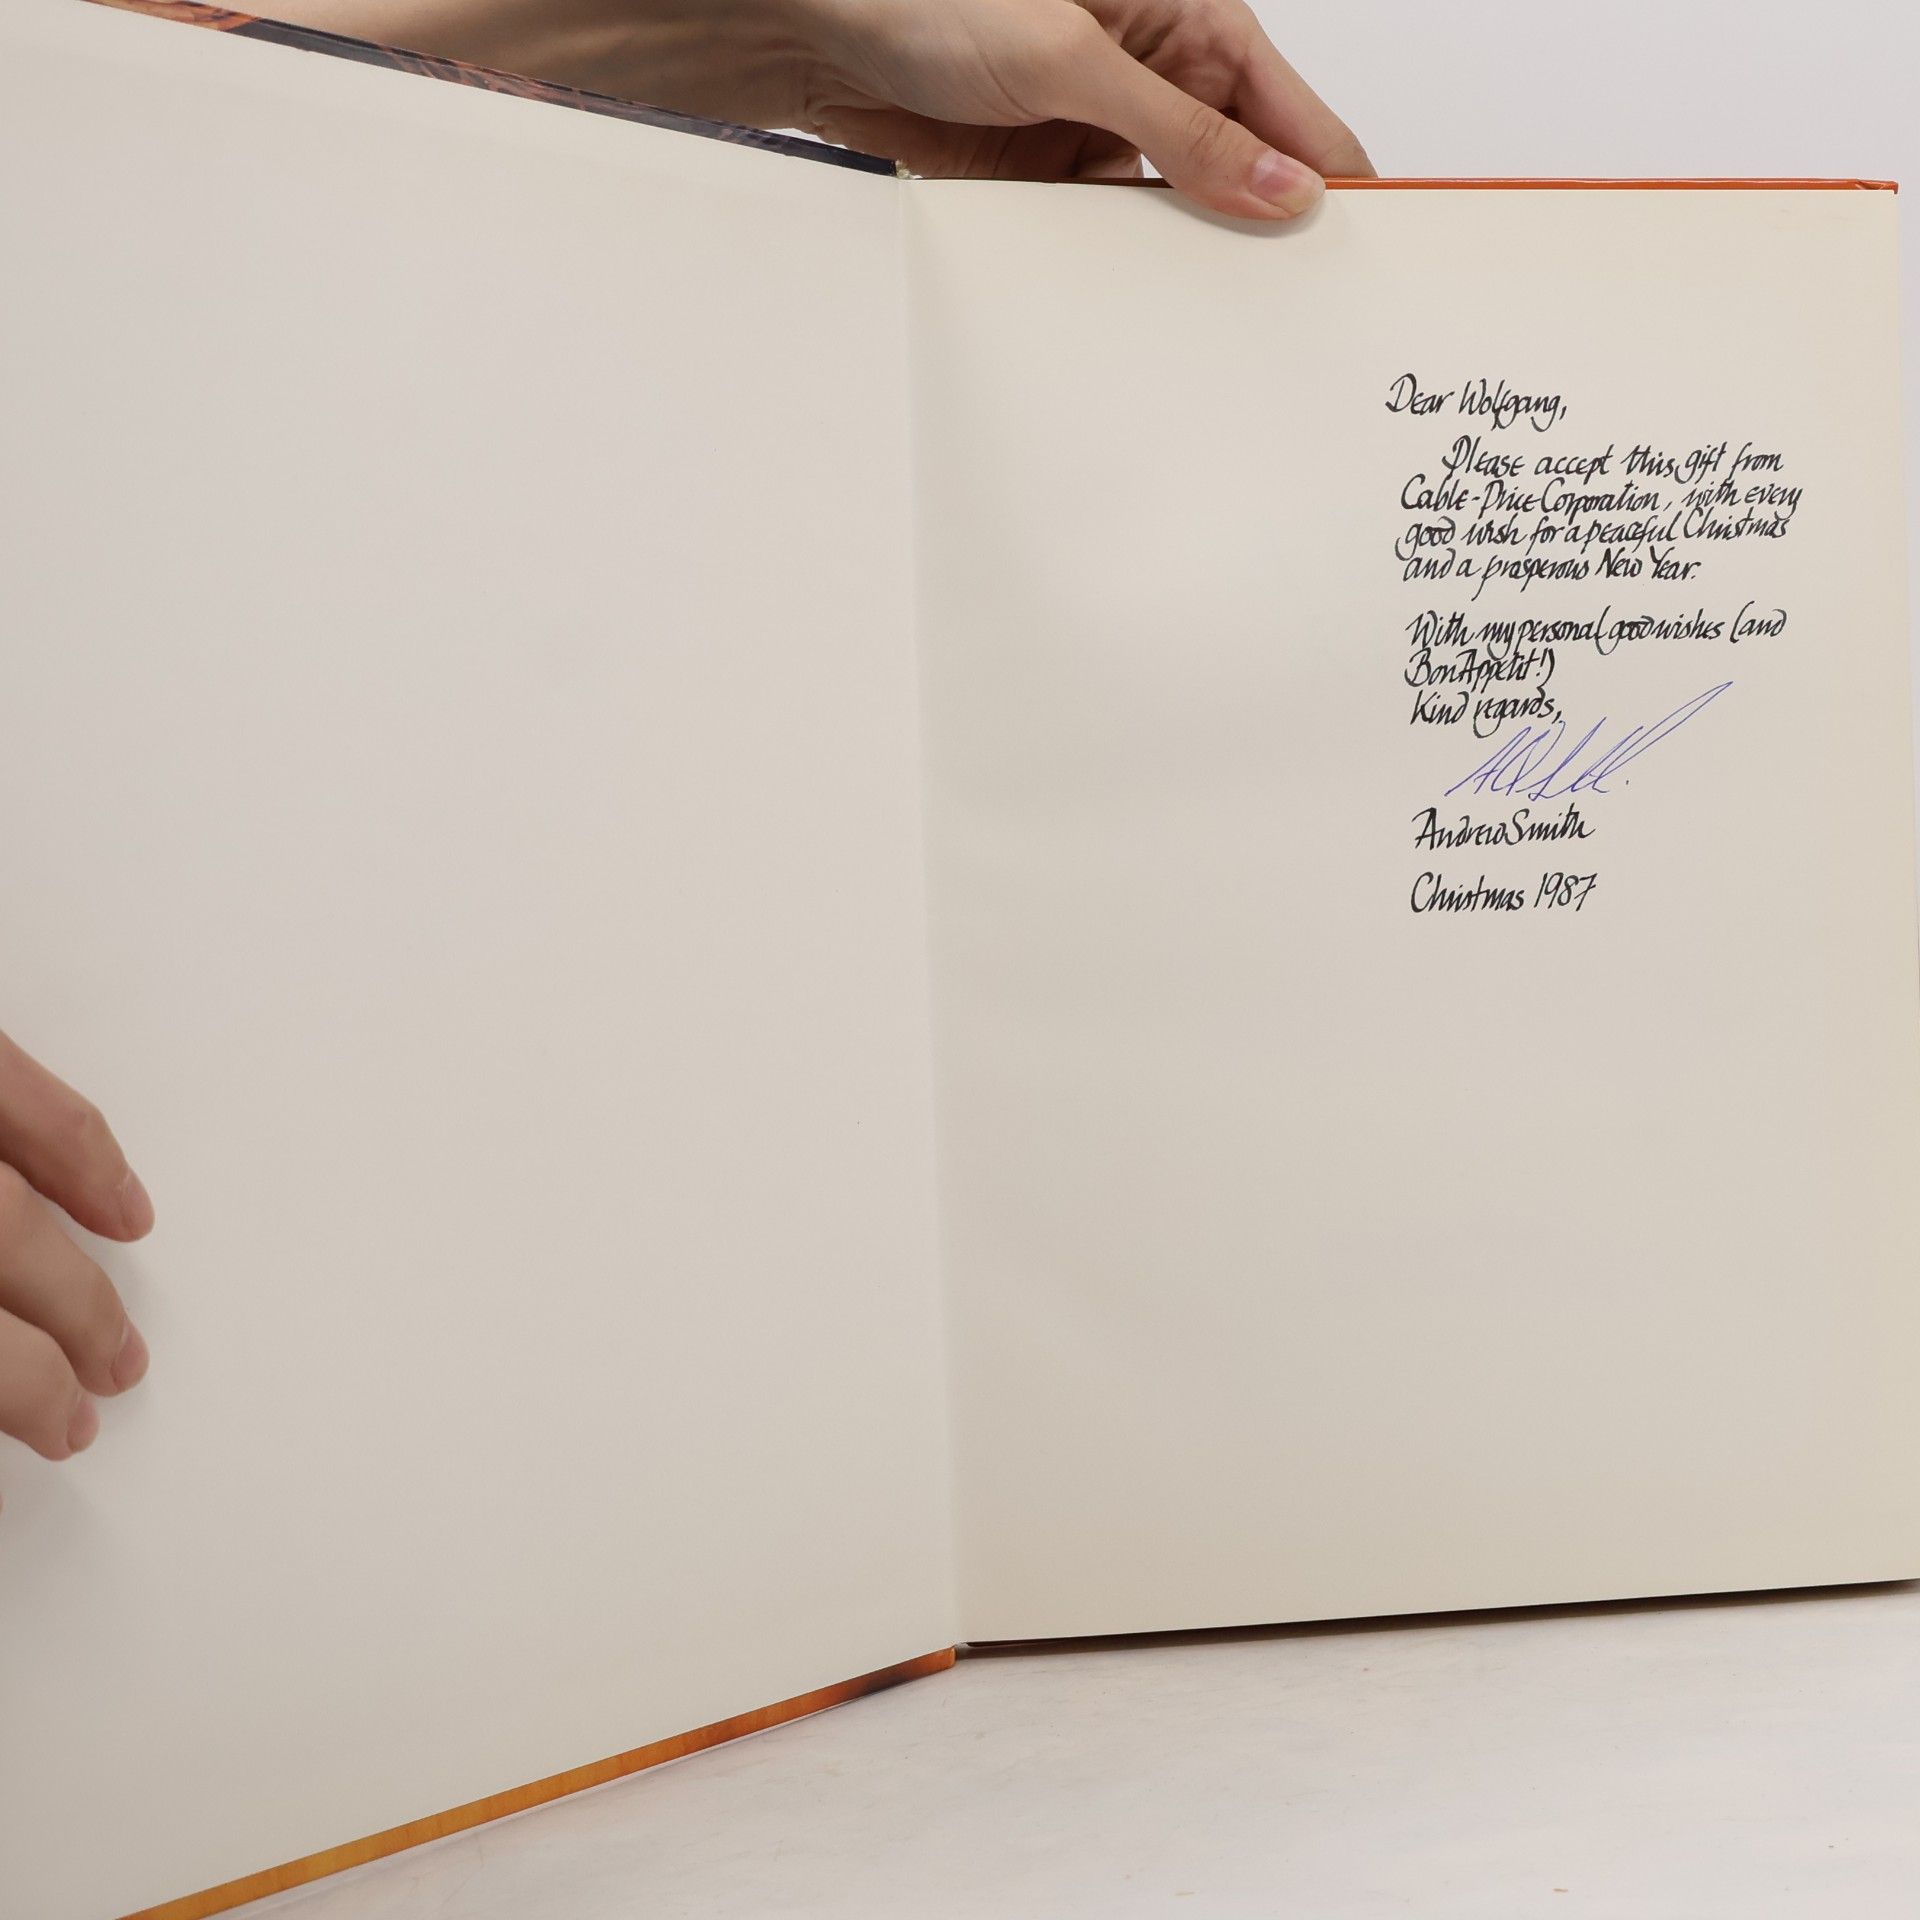 Dear Wolfgang,
Please accept this gift from
Cable-Price Corporation, with every
good wish for a peaceful Christmas
and a prosperous New Year.
With my personal good wishes (and
Bon Appetit!)
Kind regards,
Andrew Smith
Christmas 1987